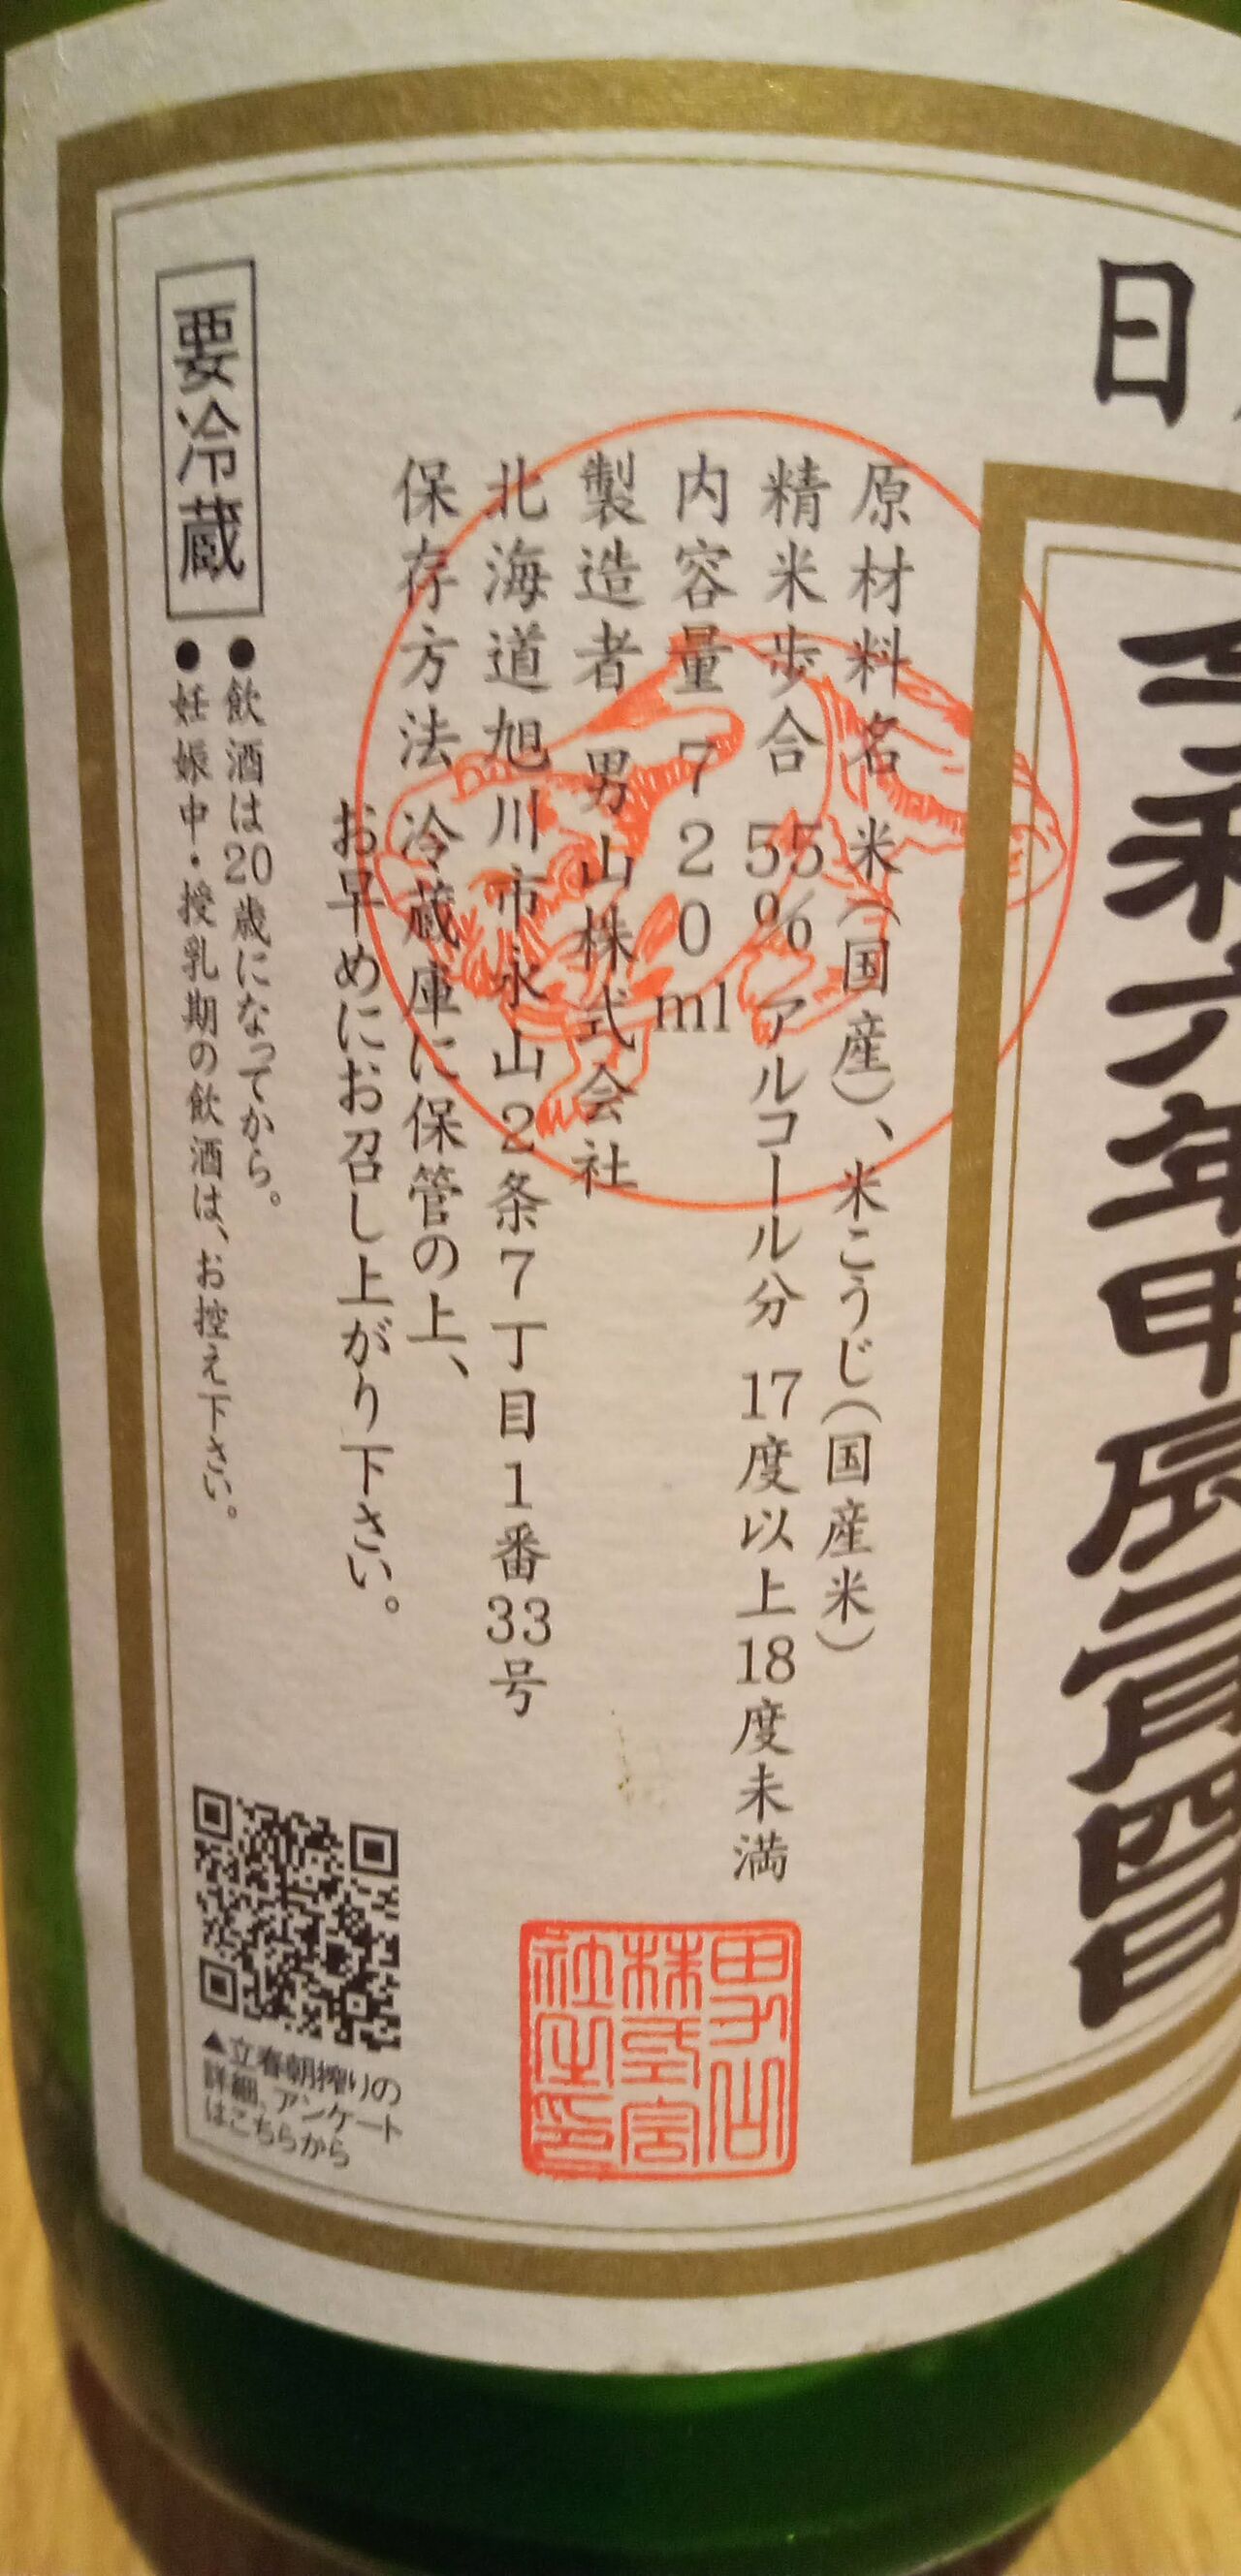 日
令和六年甲辰二月四日
原材料名 米(国産)、米こうじ(国産米)
精米歩合 55% アルコール分 17度以上18度未満
内容量 720ml
製造者 男山株式会社
北海道旭川市永山2条7丁目1番33号
保存方法 冷蔵庫に保管の上、
お早めにお召し上がり下さい。
要冷蔵
●飲酒は20歳になってから。
●妊娠中・授乳期の飲酒は、お控え下さい。
男山
株式会
社之印
▲立春朝搾りの
詳細、アンケート
はこちらから